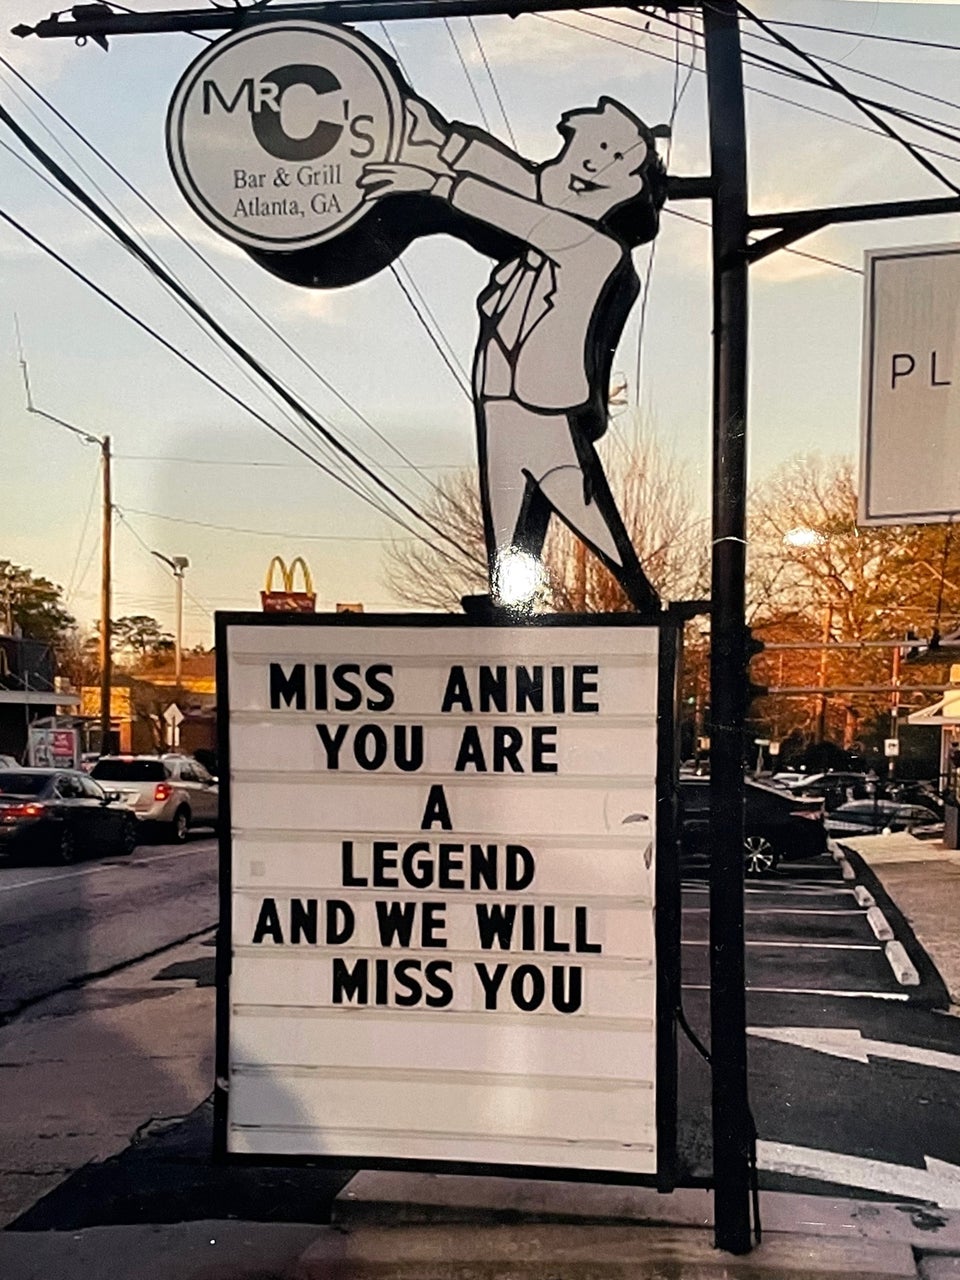 MR C'S
Bar & Grill
Atlanta, GA
PL
MISS ANNIE
YOU ARE
A
LEGEND
AND WE WILL
MISS YOU